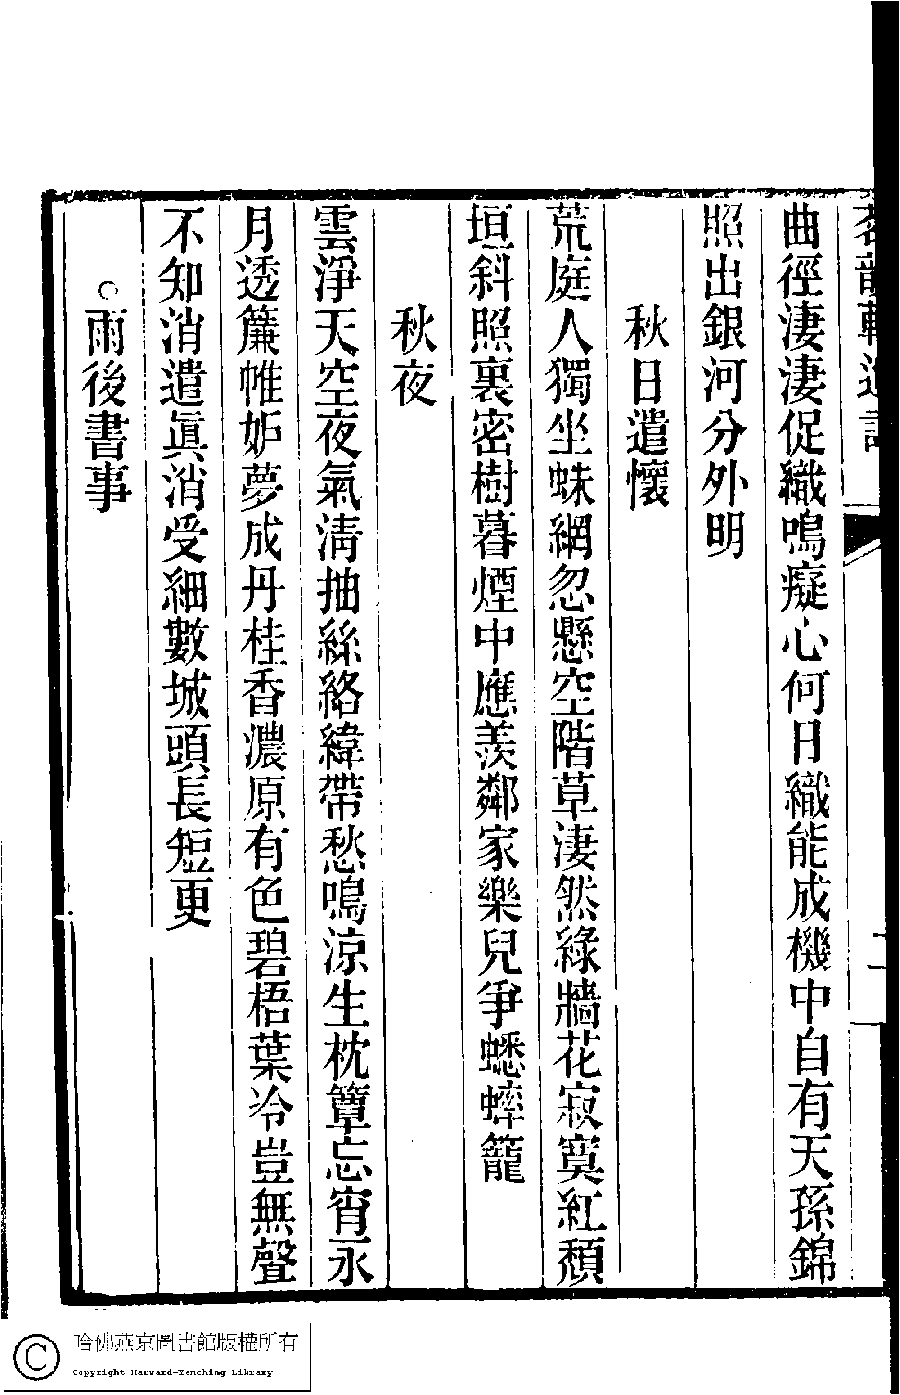 茗韻軒遺詩
曲徑淒淒促織鳴癡心何日織能成機中自有天孫錦
照出銀河分外明
秋日遣懷
荒庭人獨坐蛛網忽懸空階草淒然綠牆花寂寞紅頹
垣斜照裏密樹暮煙中應羨鄰家樂兒爭蟋蟀籠
秋夜
雲淨天空夜氣清抽絲絡緯帶愁鳴涼生枕簟忘宵永
月透簾帷妒夢成丹桂香濃原有色碧梧葉冷豈無聲
不知消遣眞消受細數城頭長短更
○雨後書事
哈佛燕京圖書館版權所有
Copyright Harvard-Yenching Library